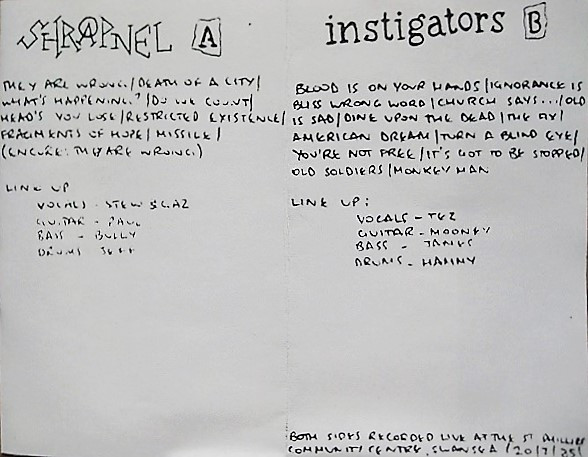 SHRAPNEL A
THEY ARE WRONG./DEATH OF A CITY/
WHAT'S HAPPENING?/DO WE COUNT/
HEAD'S YOU LOSE/RESTRICTED EXISTENCE/
FRAGMENTS OF HOPE/MISSILE/
(ENCORE: THEY ARE WRONG.)
LINE UP
VOCALS - STEW
GUITAR - PAUL
BASS - BULLY
DRUMS - JEFF
instigators B
BLOOD IS ON YOUR HANDS/IGNORANCE IS
BLISS WRONG WORD/CHURCH SAYS.../OLD
IS SAD/DINE UPON THE DEAD/THE FIX/
AMERICAN DREAM/TURN A BLIND EYE/
YOU'RE NOT FREE/IT'S GOT TO BE STOPPED/
OLD SOLDIERS/MONKEY MAN
LINE UP:
VOCALS - TEZ
GUITAR - MOONEY
BASS - TANGS
DRUMS - HAMMY
BOTH SIDES RECORDED LIVE AT THE ST PHILLIPS
COMMUNITY CENTRE, SWANSEA / 20/7/85